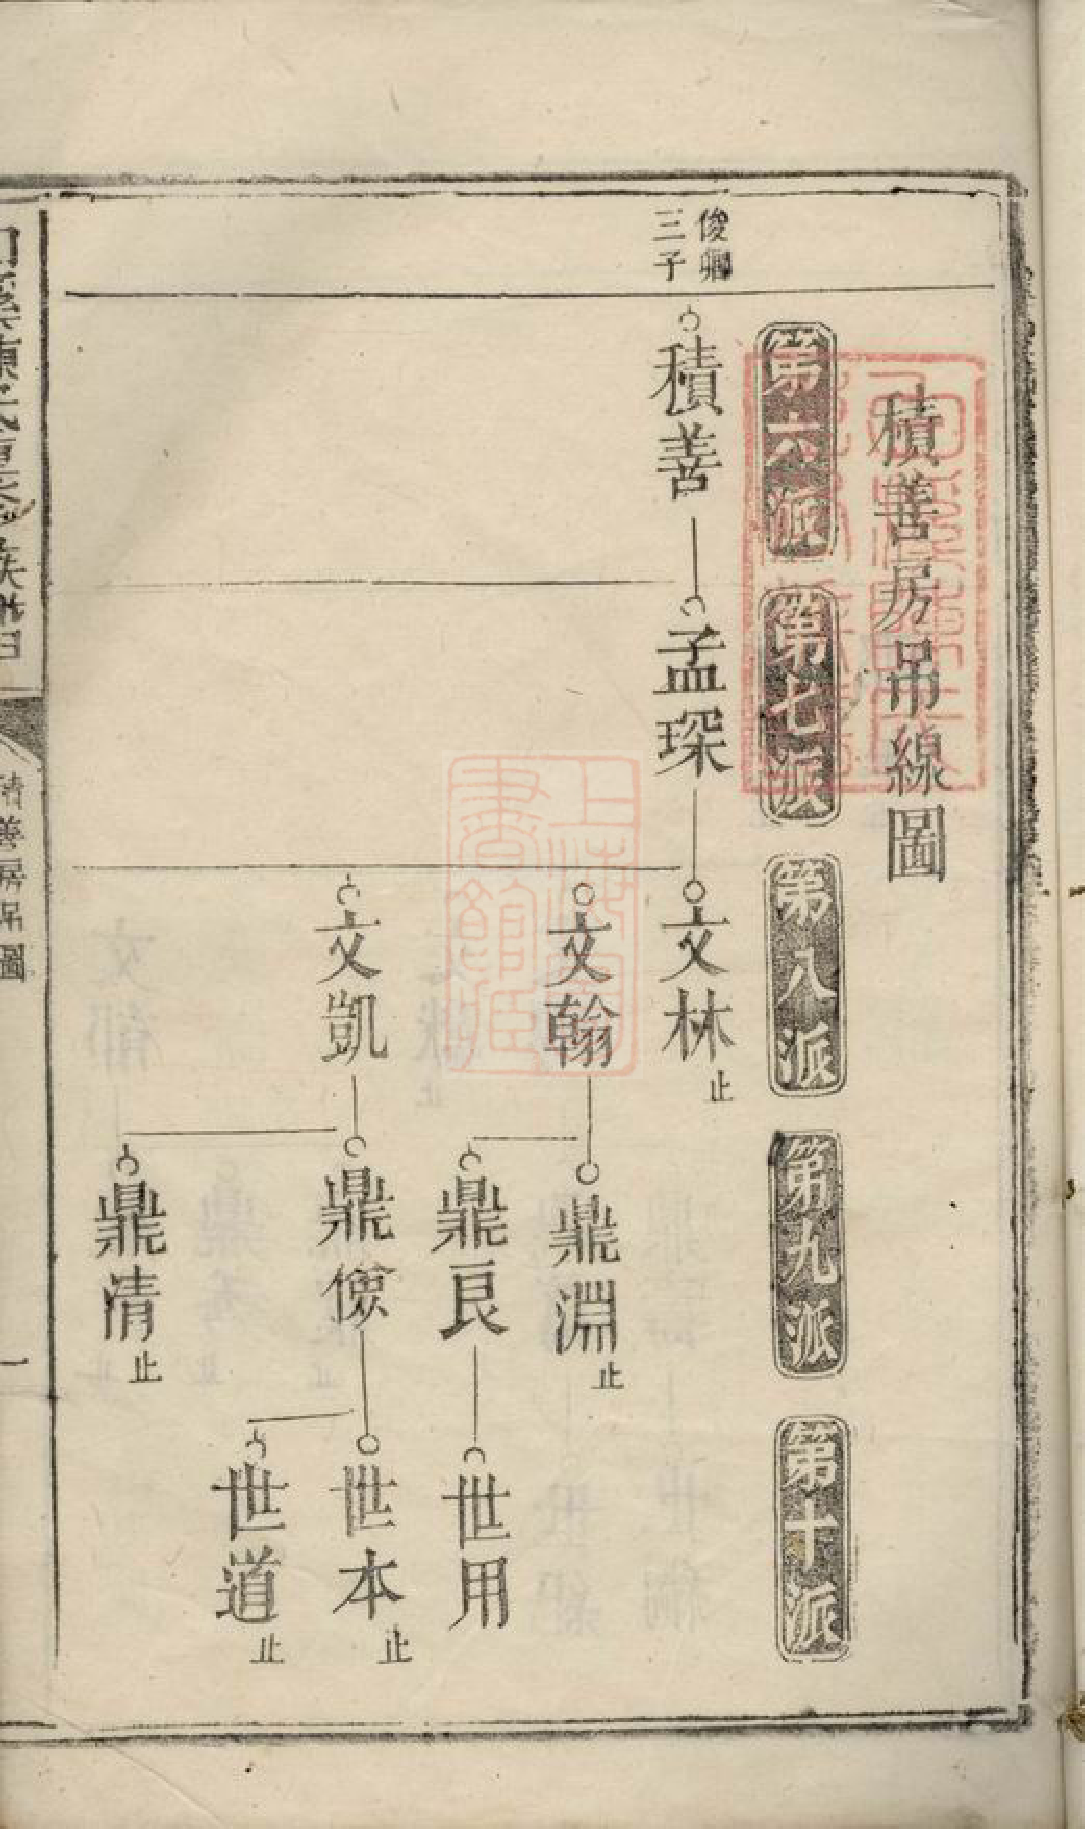 積善房吊線圖
第六派
第七派
第八派
第九派
第十派
俊卿
三子
積善
孟琛
文林止
文翰
文凱
鼎淵止
鼎良
鼎儉
鼎清止
世用
世本止
世道止
積善房吊圖
一
上海圖
書館臧